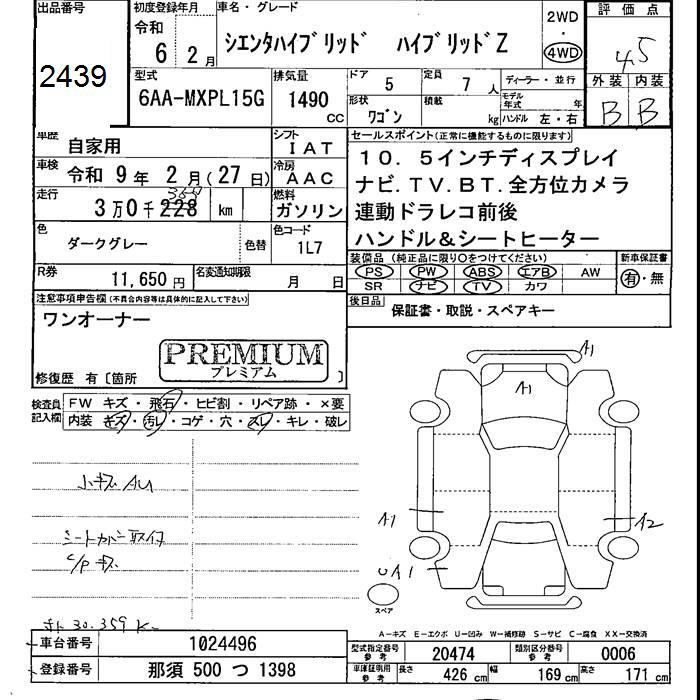 出品番号
2439
初度登録年月
令和
6 年 2 月
車名・グレード
シエンタハイブリッド ハイブリッドZ
2WD
・
4WD
評価点
4.5
外装 内装
B B
型式
6AA-MXPL15G
排気量
1490 cc
ドア
5
定員
7 人
形状
ワゴン
積載
kg
ディーラー・並行
モデル年式 年
ハンドル 左・右
車歴
自家用
シフト
IAT
車検
令和 9 年 2 月 (27 日)
冷房
AAC
走行
3万0千228 km
359
燃料
ガソリン
色
ダークグレー
色替
色コード
1L7
R券
11,650 円
名変通知期限
月 日
セールスポイント(正常に機能するものに限ります)
10.5インチディスプレイ
ナビ.TV.BT.全方位カメラ
連動ドラレコ前後
ハンドル&シートヒーター
装備品(純正品に限り○をつけてください)
PS PW ABS エアB AW
SR ナビ TV カワ
新車保証書
有・無
後日品
保証書・取説・スペアキー
注意事項申告欄(不具合内容等は具体的に記入して下さい)
ワンオーナー
PREMIUM
プレミアム
修復歴 有〔箇所 〕
検査員記入欄
FW キズ・飛石・ヒビ割・リペア跡・×要
内装 キズ・汚レ・コゲ・穴・スレ・キレ・破レ
小キズ AU
シートカバー取付
C/P キズ
30.359 K
A1
A1
A1
A2
UA1
スペア
A-キズ E-エクボ U-凹み W-補修跡 S-サビ C-腐食 XX-交換済
車台番号
1024496
登録番号
那須 500 つ 1398
型式指定番号
参考
20474
類別区分番号
参考
0006
車庫証明用
参考
長さ 426 cm
幅 169 cm
高さ 171 cm